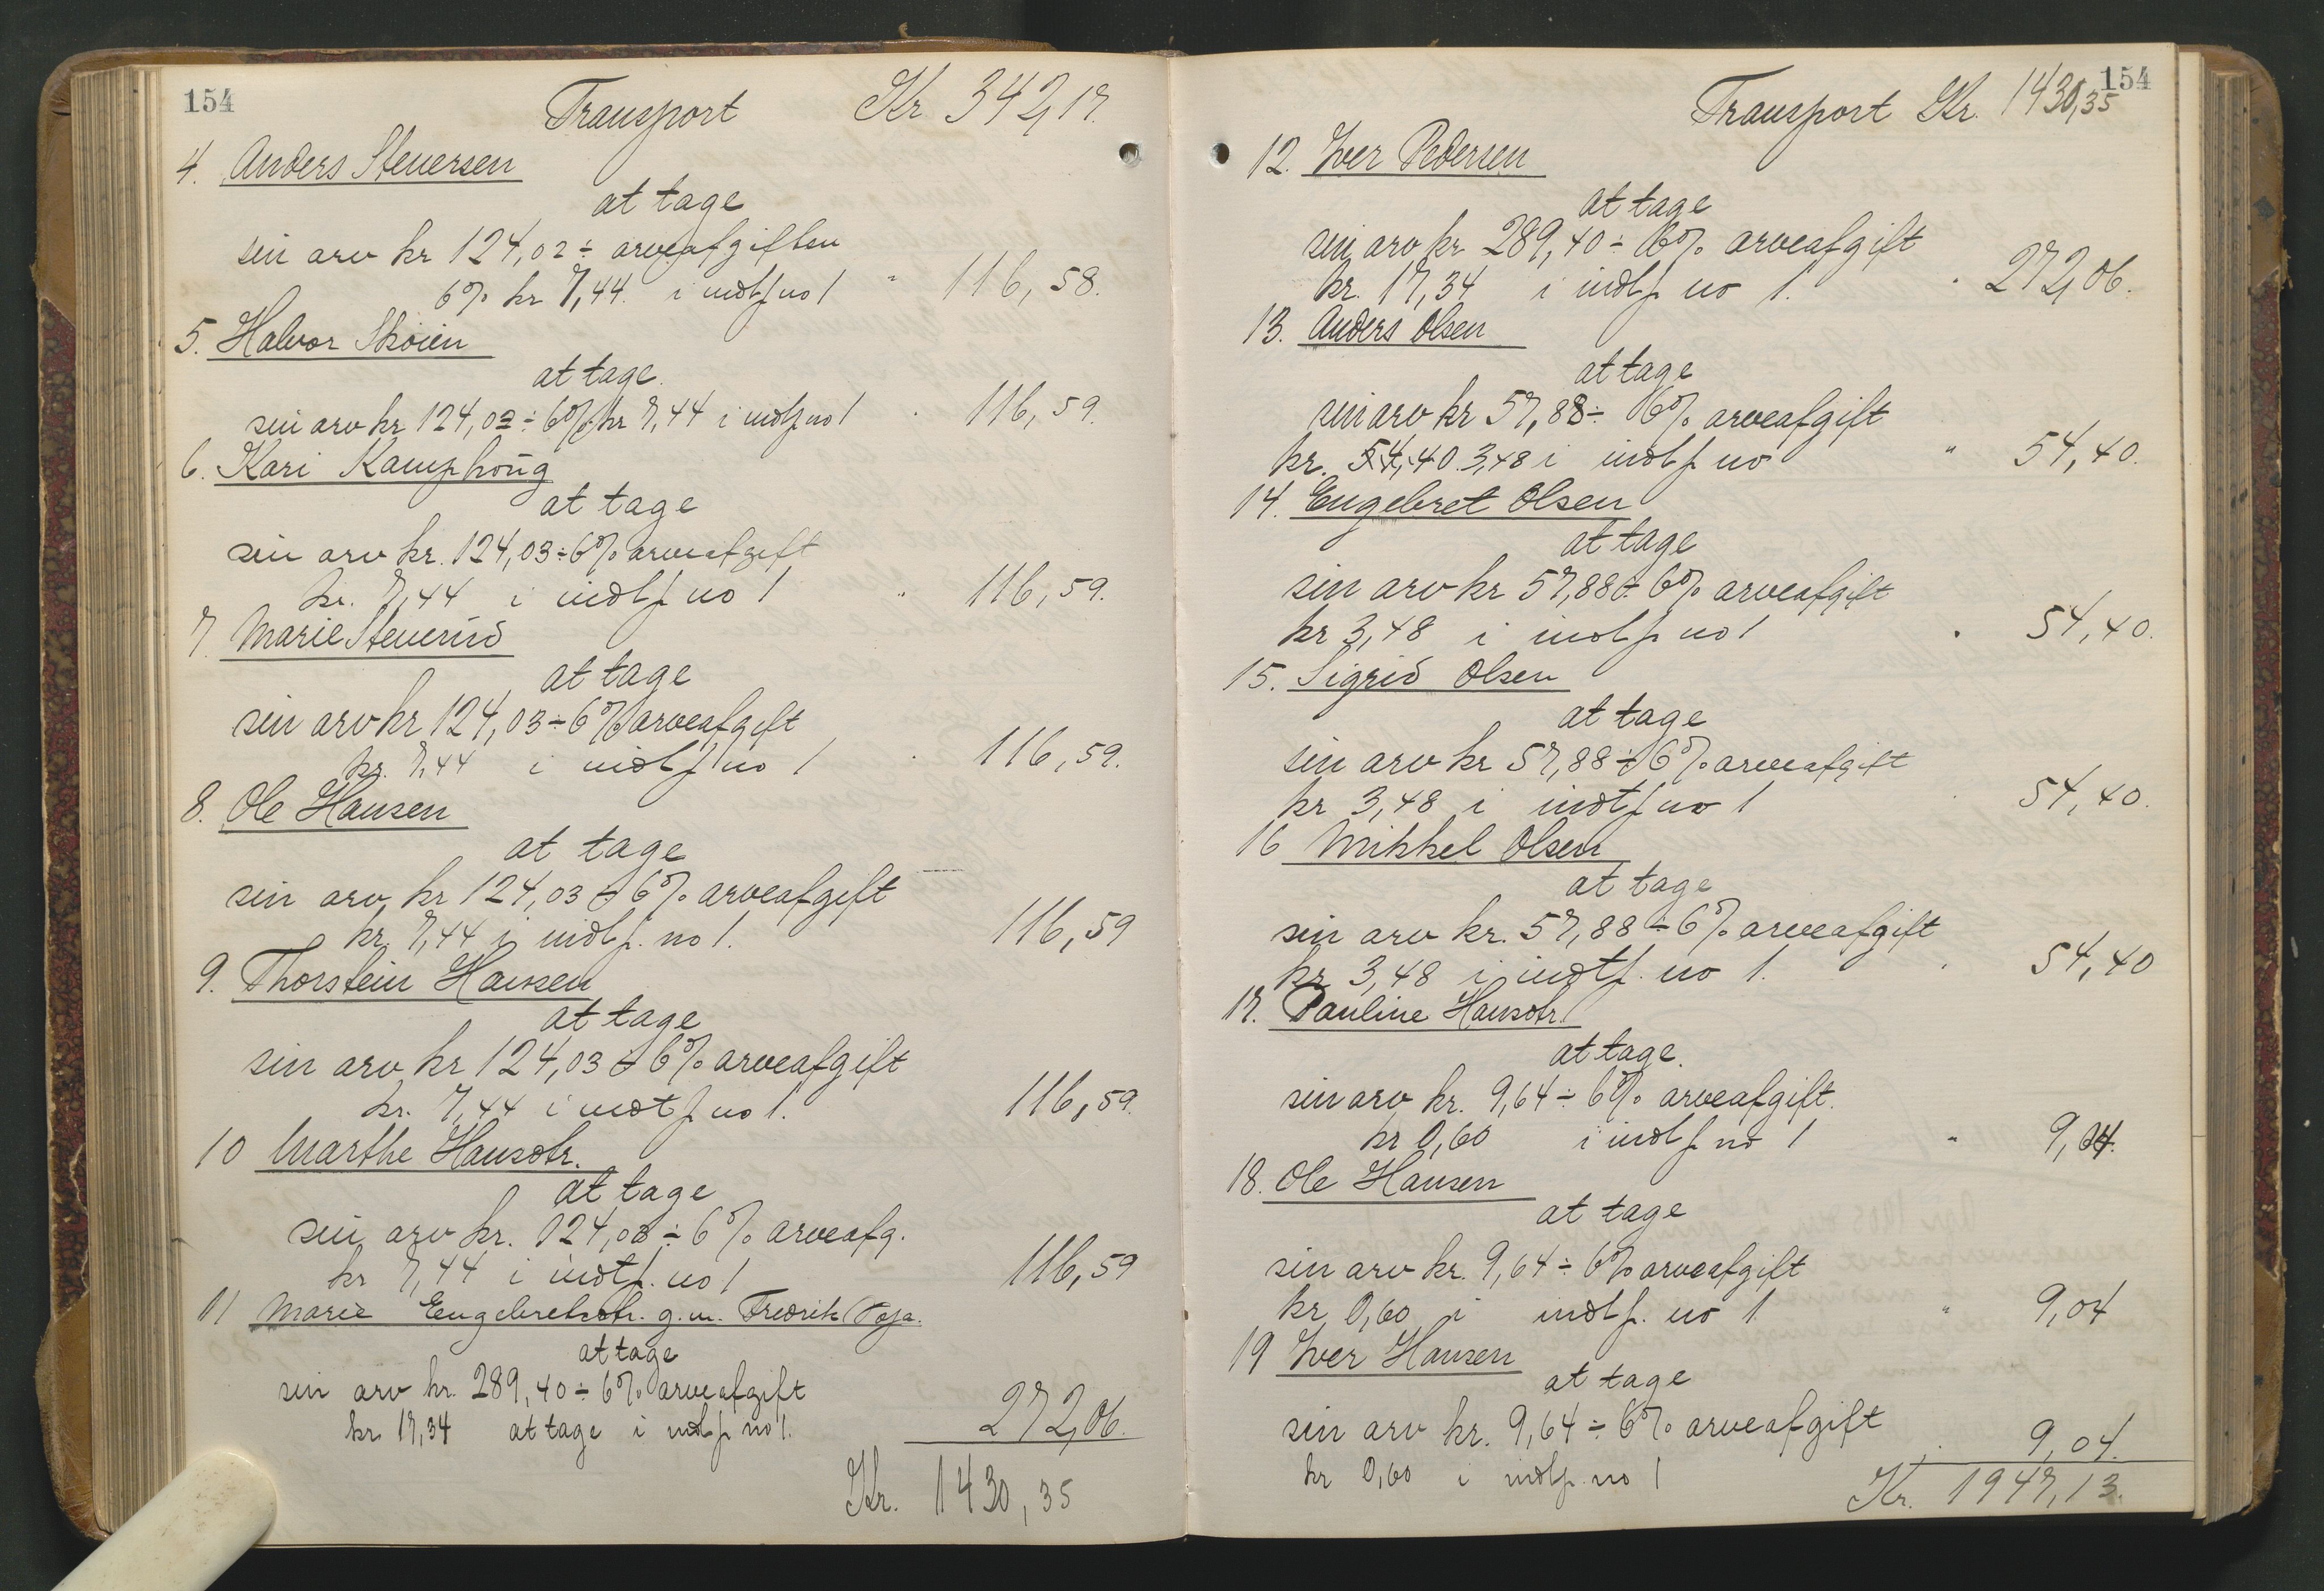 154
Transport Kr 342,17.
4. Anders Steversen
at tage
sin arv kr 124,02 ÷ arveafgiften
6% kr 7,44 i indtf no 1 " 116,58.
5. Halvor Skoien
at tage.
sin arv kr 124,03 ÷ 6% kr 7,44 i indtf no 1 116,59.
6. Kari Kamphoug
at tage
sin arv kr. 124,03 ÷ 6% arveafgift
kr. 7,44 i indtf no 1 " 116,59.
7 Marie Steverud
at tage
sin arv kr 124,03 ÷ 6% arveafgift
kr. 7,44 i indtf no 1 116,59.
8. Ole Hansen
at tage
sin arv kr 124,03 ÷ 6% arveafgift
kr 7,44 i indtf. no 1. 116,59
9. Thorstein Hansen
at tage
sin arv kr 124,03 ÷ 6% arveafgift
kr. 7,44 i indtf no 1. 116,59.
10 Marthe Hansdtr.
at tage
sin arv kr. 124,03 ÷ 6% arveafg.
kr 7,44 i indtf. no 1 116,59
11 Marie Engebretsdtr. g.m. Fredrik
at tage
sin arv kr. 289,40 ÷ 6% arveafgift
kr 17,34 at tage i indtf no 1. 272,06.
Kr. 1430,35
154
Transport Kr. 1430,35
12. Iver Pedersen
at tage
sin arv kr 289,40 ÷ 6% arveafgift
kr. 17,34 i indtf no 1. 272,06.
13. Anders Olsen
at tage
sin arv kr 57,88 ÷ 6% arveafgift
kr. 54,40. 3,48 i indtf no " 54,40.
14. Engebret Olsen
at tage
sin arv kr 57,88 ÷ 6% arveafgift
kr 3,48 i indtf no 1 54,40.
15. Sigrid Olsen
at tage
sin arv kr 57,88 ÷ 6% arveafgift
kr 3,48 i indtf no 1 54,40.
16 Mikkel Olsen
at tage
sin arv kr. 57,88 ÷ 6% arveafgift
kr 3,48 i indtf. no 1. 54,40
17. Pauline Hansdtr.
at tage.
sin arv kr. 9,64 ÷ 6% arveafgift.
kr 0,60 i indtf no 1 " 9,04.
18. Ole Hansen
at tage
sin arv kr. 9,64 ÷ 6% arveafgift
kr 0,60 i indtf. no 1 " 9,04
19 Iver Hansen
at tage
sin arv kr. 9,64 ÷ 6% arveafgift
kr 0,60 i indtf. no 1 9,04.
Kr. 1947,13.